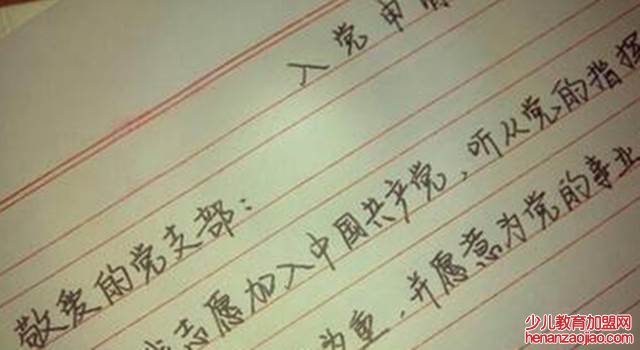 入党申
敬爱的党支部：
志愿加入中国共产党，听从党的指挥
为重，并愿意为党的事业
少儿教育加盟网
henanzaojiao.com